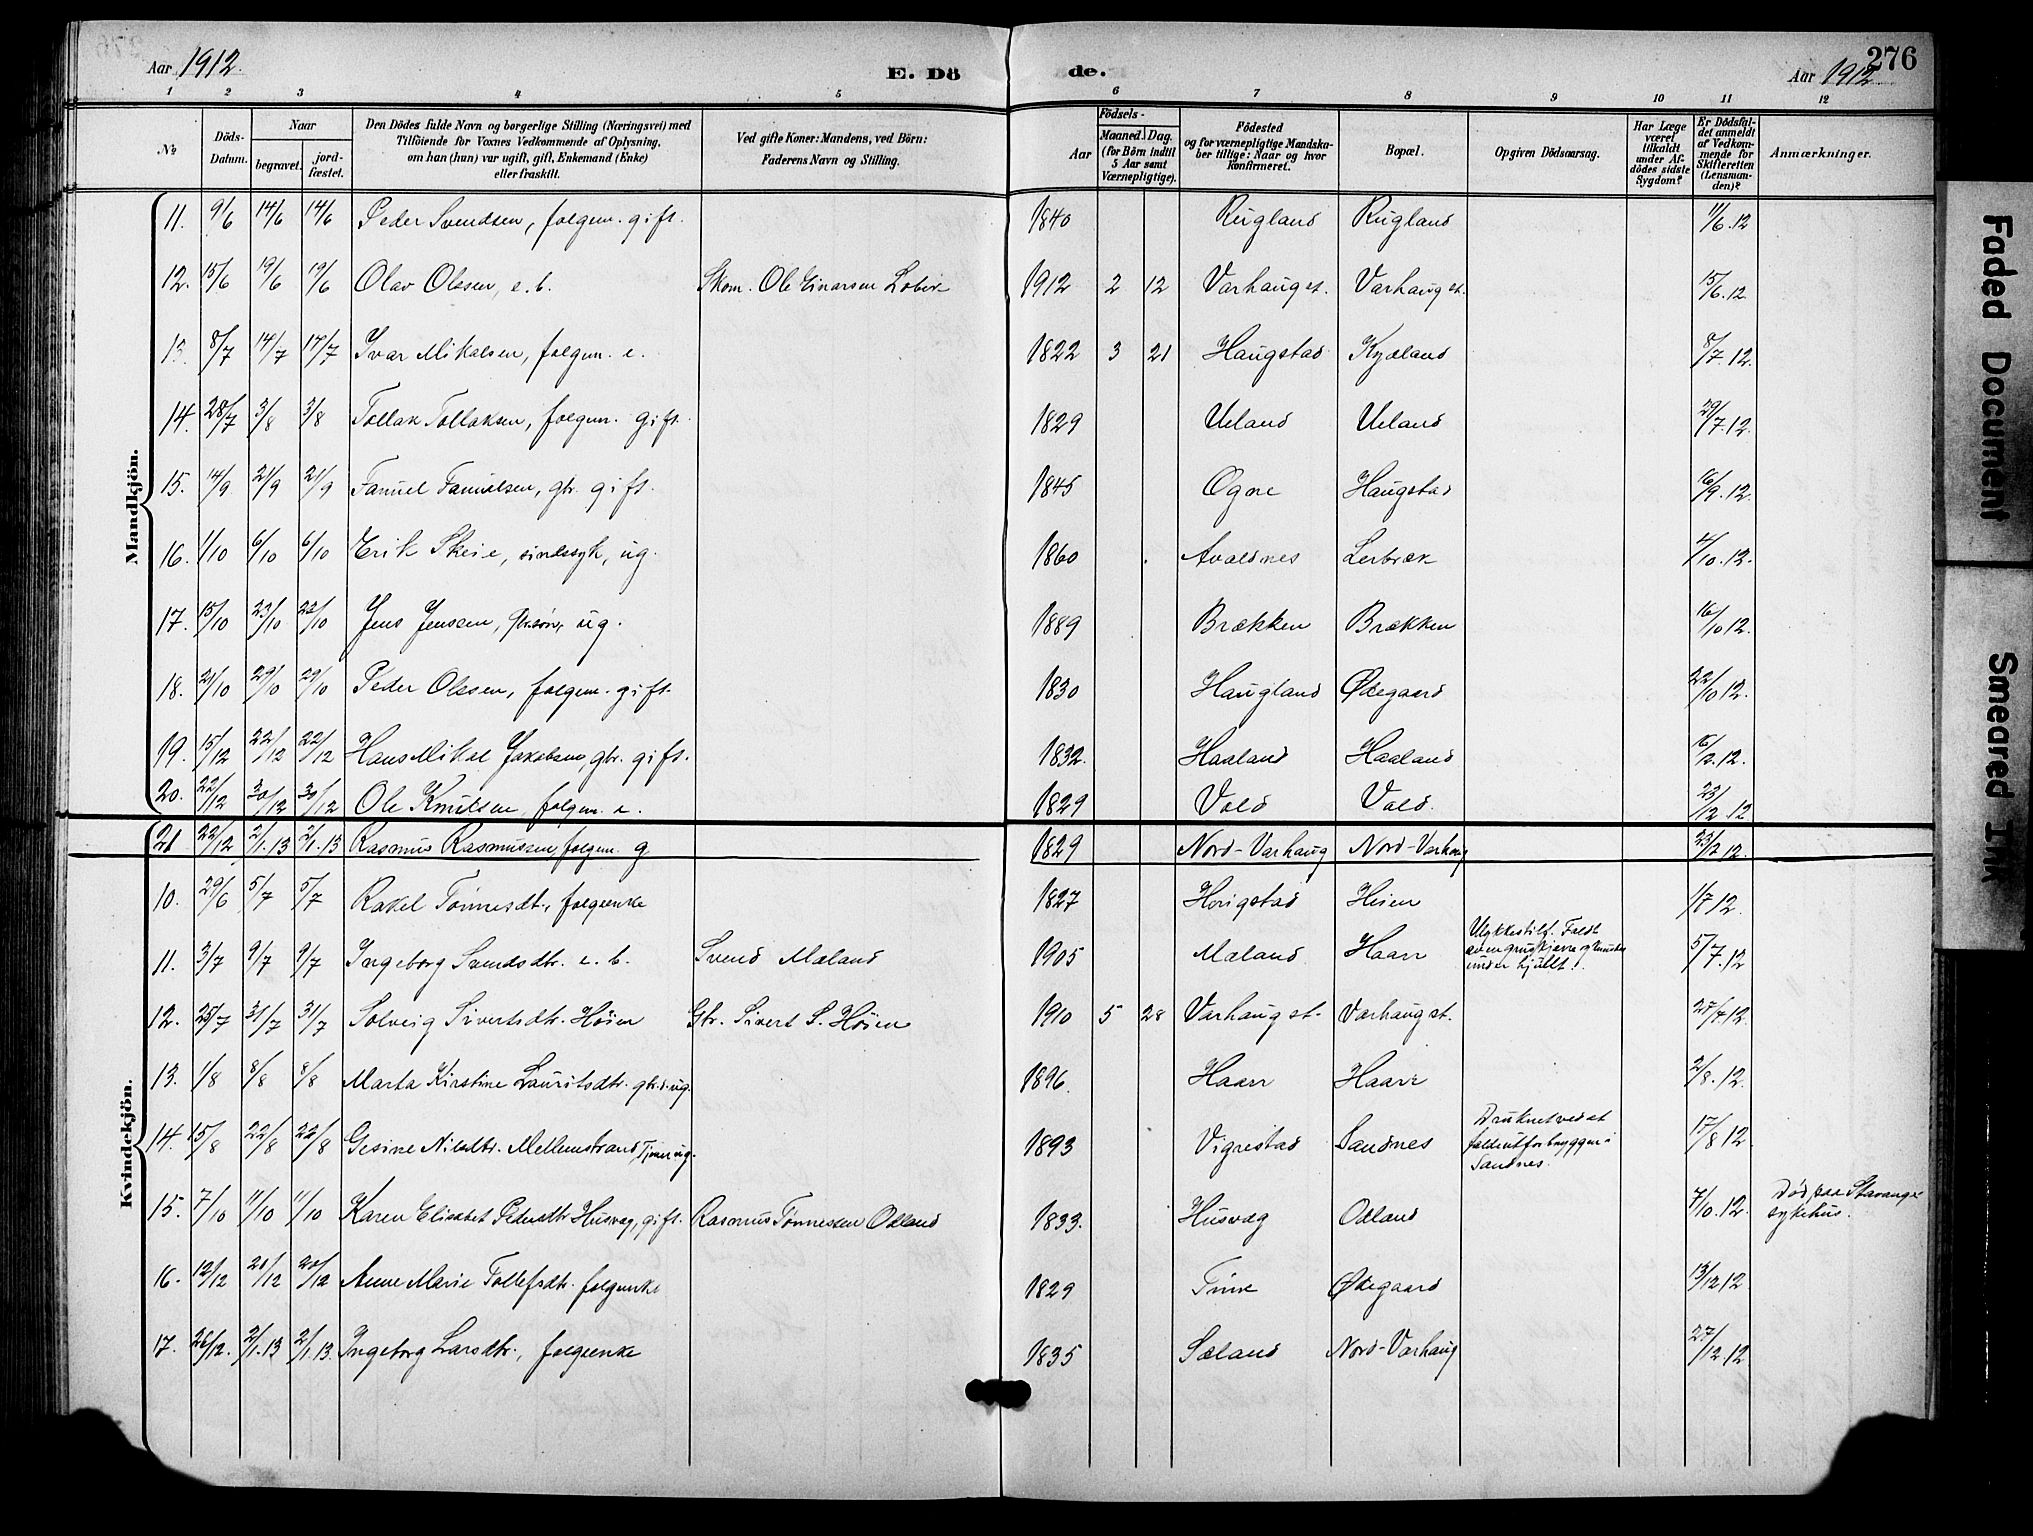 276
Aar 1912. E. Dö de. Aar 1912
1 2 3 4 5 6 7 8 9 10 11 12
№
Döds-Datum.
Naar
begravet.
jord-fæstet.
Den Dödes fulde Navn og borgerlige Stilling (Næringsvei) med
Tilföiende for Voxnes Vedkommende af Oplysning,
om han (hun) var ugift, gift, Enkemand (Enke)
eller fraskilt.
Ved gifte Koner: Mandens, ved Börn:
Faderens Navn og Stilling.
Födsels-
Aar
Maaned. Dag.
(for Börn indtil
5 Aar samt
Værnepligtige).
Födested
og for værnepligtige Mandska-
ber tillige: Naar og hvor
konfirmeret.
Bopæl.
Opgiven Dödsaarsag.
Har Læge
været
tilkaldt
under Af-
dödes sidste
Sygdom?
Er Dödsfal-
det anmeldt
af Vedkom-
mende for
Skifteretten
(Lensman-
den)?
Anmærkninger.
Mandkjön.
11. 9/6 14/6 14/6 Peder Svendsen, folgem. gift. 1840 Rugland Rugland 11/6.12
12. 15/6 19/6 19/6 Olav Olssen, e.b. Skom. Ole Einarsen 1912 2 12 Varhaug st. Varhaug st. 15/6.12
13. 8/7 14/7 14/7 Ivar Mikalsen, folgem. e. 1822 3 21 Haugstad Kydland 8/7.12.
14. 28/7 3/8 3/8 Tollak Tollaksen, folgem. gift. 1829 Ueland Ueland 29/7.12.
15. 14/9 21/9 21/9 Fanuel gbr. gift. 1845 Ogne Haugstad 16/9.12.
16. 1/10 6/10 6/10 Erik Skeie, sindssyk, ug. 1860 Avaldnes Lerbræk 4/10.12.
17. 15/10 23/10 23/10 Jens Jenssen, gbr.søn, ug. 1889 Brækken Brækken 16/10 12.
18. 21/10 29/10 29/10 Peder Olssen, folgem. gift. 1830 Haugland Ødegaard 22/10 12.
19. 15/12 22/12 22/12 Hans Mikal Jakobsen, gbr. gift. 1832. Haaland Haaland 16/12 12.
20. 22/12 30/12 30/12 Ole Knutsen, folgem. e. 1829 Vold Vold. 23/12 12
21 22/12 2/1.13 2/1.13 Rasmus Rasmussen, folgem. g 1829 Nord-Varhaug Nord-Varhaug 23/12 12.
Kvindekjön.
10. 29/6 5/7 5/7 Rakel Tønnesdt., folgeenke 1827 Horigstad Heien 1/7 12.
11. 3/7 9/7 9/7 Ingeborg Svendsdtr. e.b. Svend Mæland 1905 Mæland Haar Ulykkestilf. Faldt av en gruskjærre under hjullt. 5/7.12
12. 25/7 31/7 31/7 Solveig Sivertsdtr. Høien Gbr. Sivert S. Høien 1910 5 28 Varhaug st. Varhaug st. 27/7.12.
13. 1/8 8/8 8/8 Marta Kirstine Lauritsdtr. gbrd. ug. 1896. Haarr Haarr 2/8.12.
14. 15/8 22/8 22/8 Gesine Nilsdtr. Mellemstrand, Tjener ug. 1893 Vigrestad Sandnes Druknet ved at falde utfor bryggen i Sandnes. 17/8 12.
15. 7/10 11/10 11/10 Karen Elisabet Pedersdtr. Husvæg, gift. Rasmus Tønnessen Odland 1833. Husvæg Odland 7/10.12. Død paa Stavanger sykehus.
16. 12/12 20/12 20/12 Anne Marie Tollefsdtr. folgeenke 1829 Time Ødegaard 13/12 12
17. 26/12. 2/1.13 2/1.13. Ingeborg Larsdtr., folgeenke 1835 Sæland Nord-Varhaug 27/12.12
Faded Document
Smeared Ink